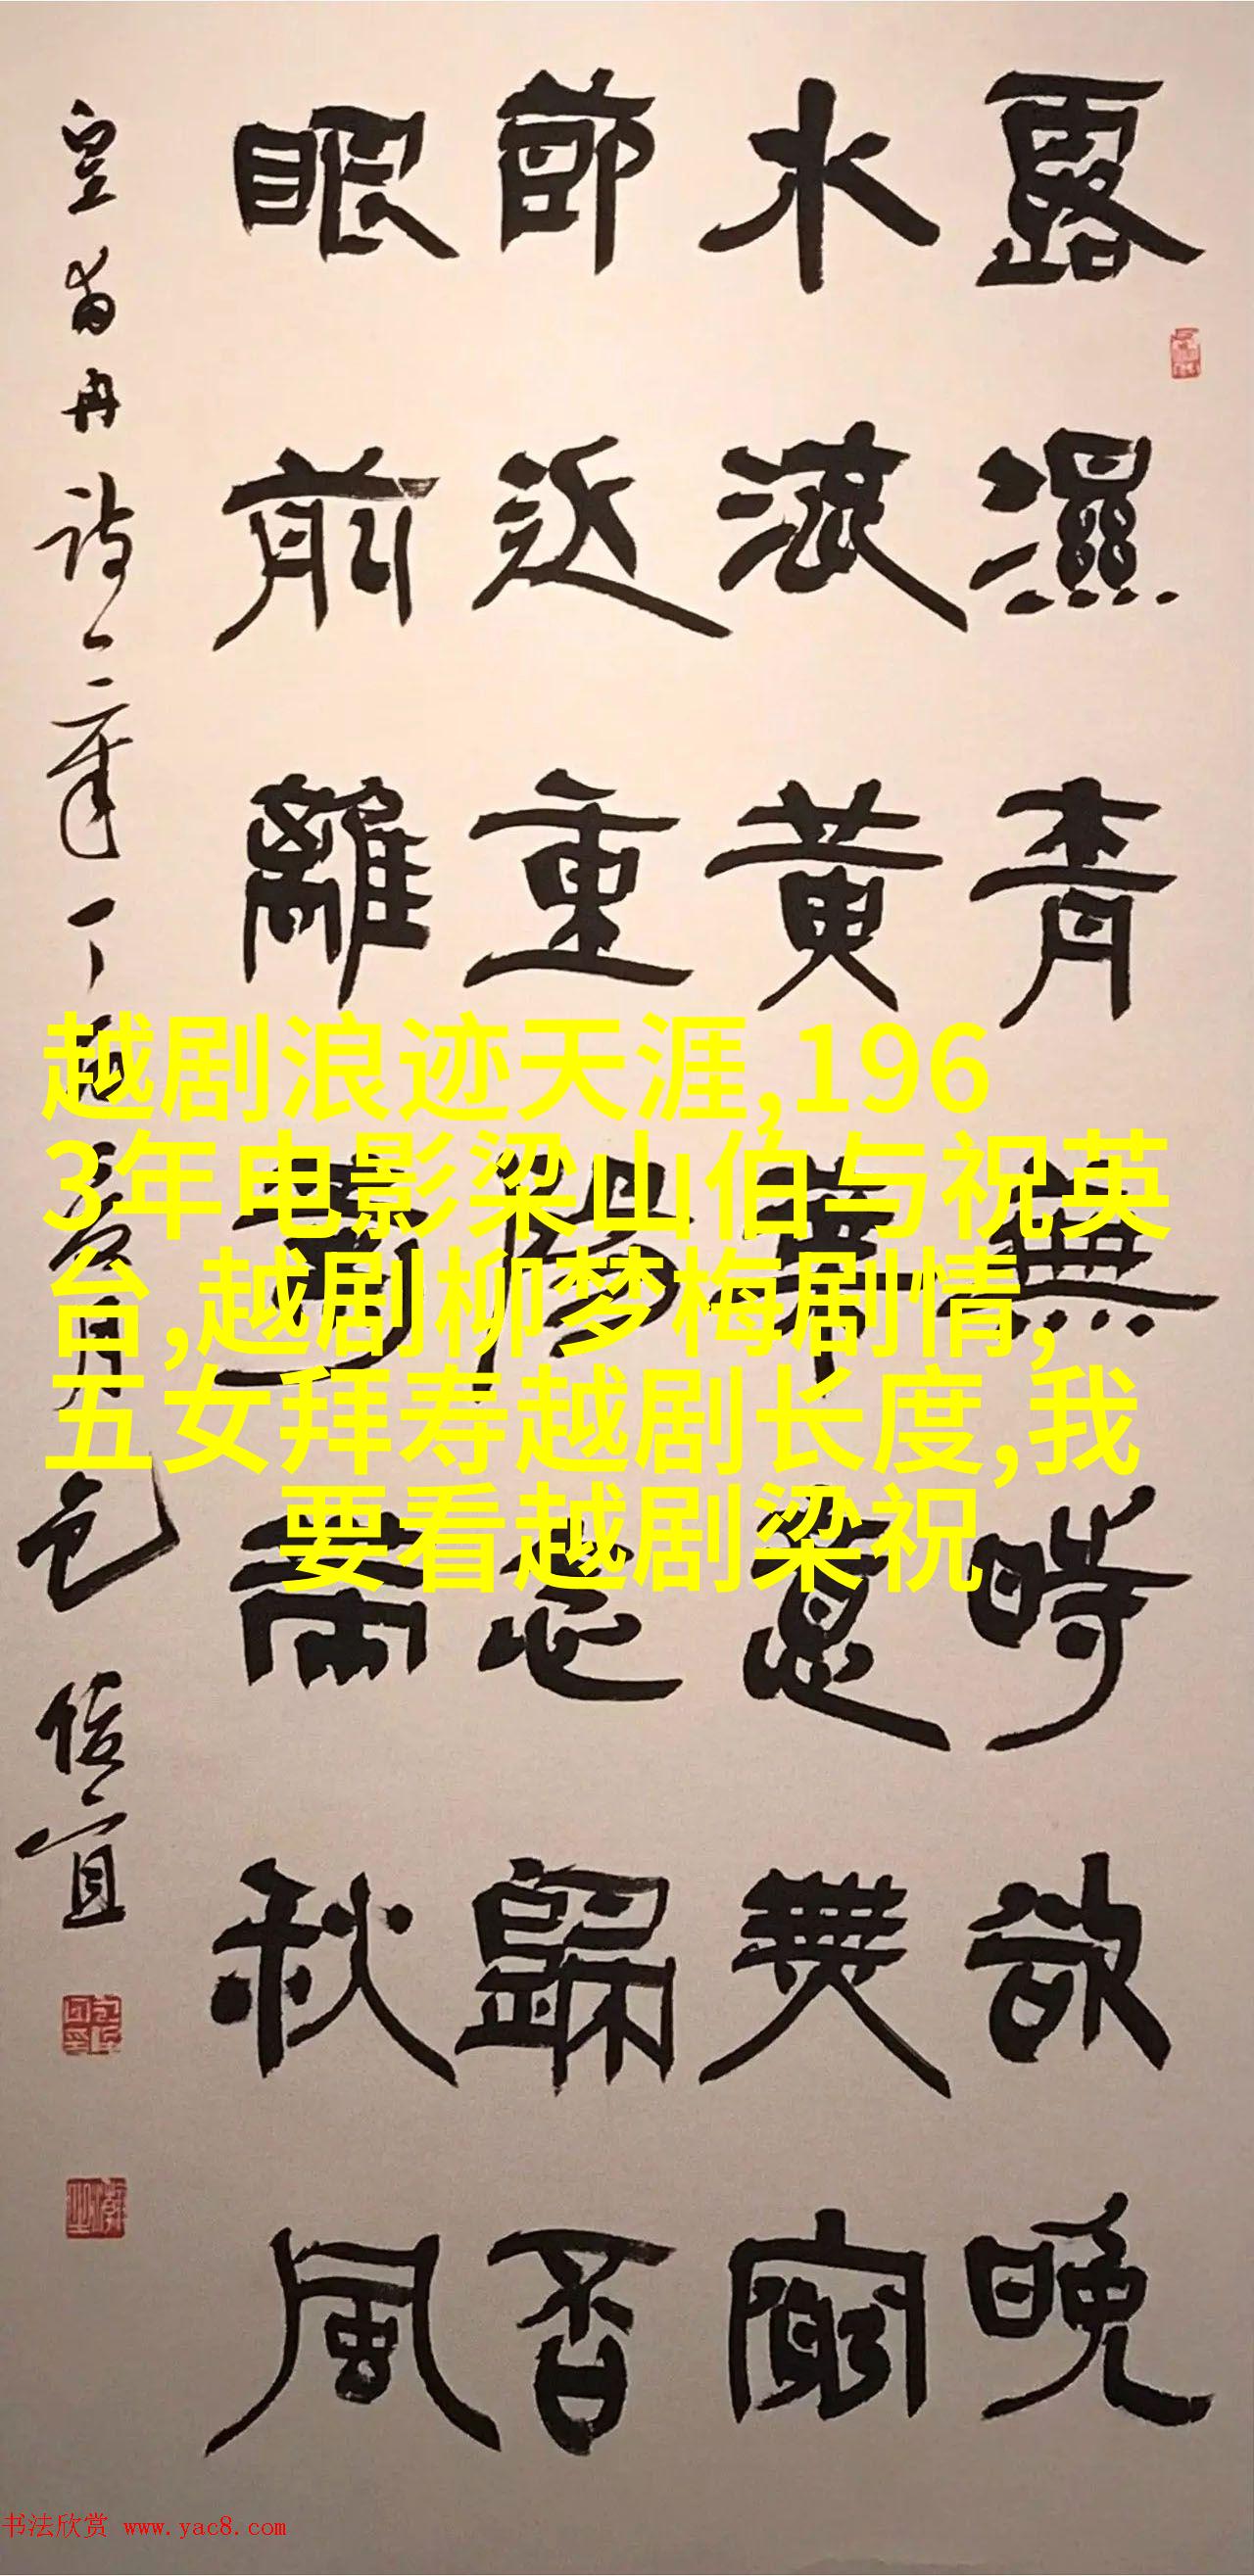 露濕青蕪時欲晚
水流黄葉意無窮
節近重陽念歸否
眼前離菊帶秋風
皇甫冉诗一章丁酉
越剧浪迹天涯,196
3年电影梁山伯与祝英
台,越剧柳梦梅剧情,
五女拜寿越剧长度,我
要看越剧梁祝
书法欣赏 www.yac8.com